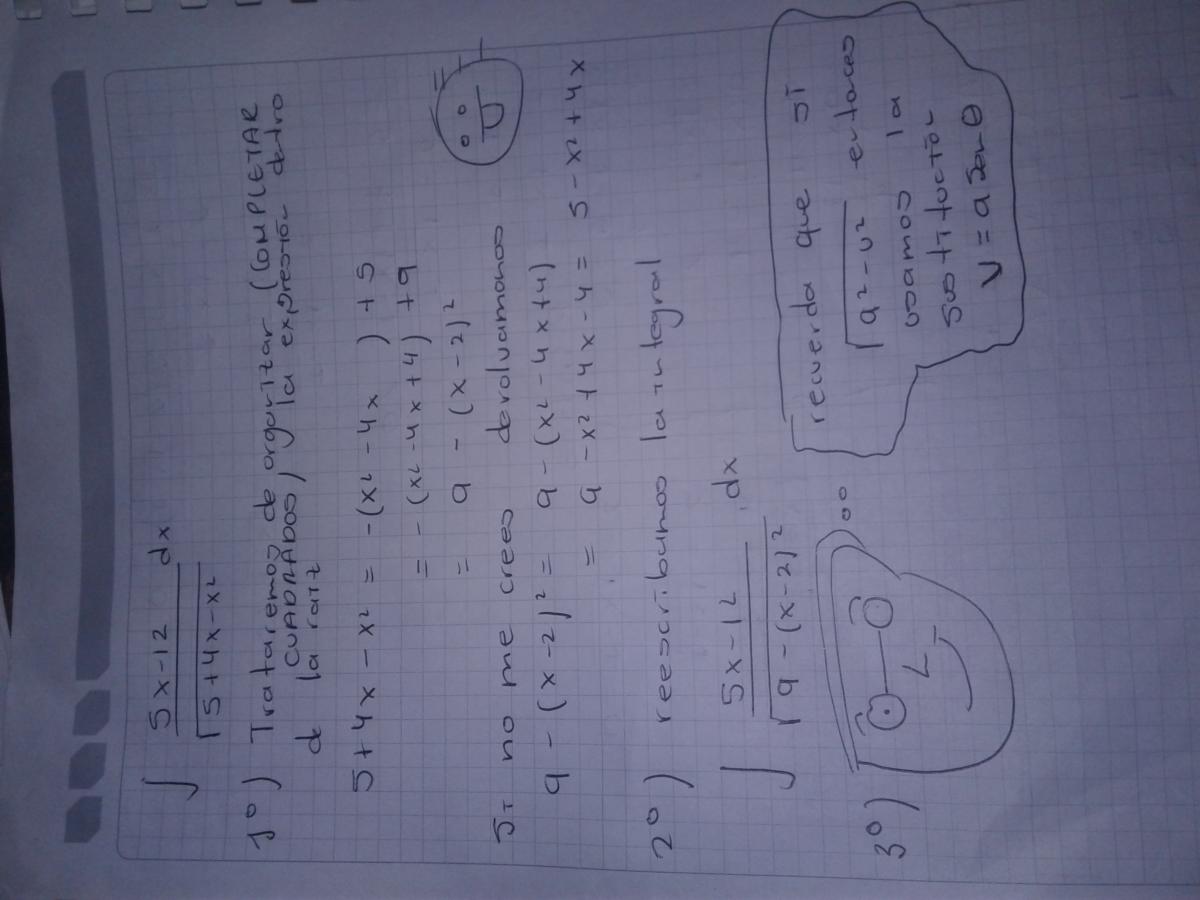 ∫ 5x-12 / √5+4x-x² dx
1º) Trataremos de organizar (COMPLETAR
CUADRADOS) la expresión dentro
de la raíz
5+4x-x² = -(x²-4x ) +5
= -(x²-4x+4) +9
= 9 - (x-2)²
Si no me crees devolvamonos
9-(x-2)² = 9-(x²-4x+4)
= 9-x²+4x-4 = 5-x²+4x
2º) reescribimos la integral
∫ 5x-12 / √9-(x-2)² dx
3º)
recuerda que si
√a²-u² entonces
usamos la
sustitución
u = a senθ